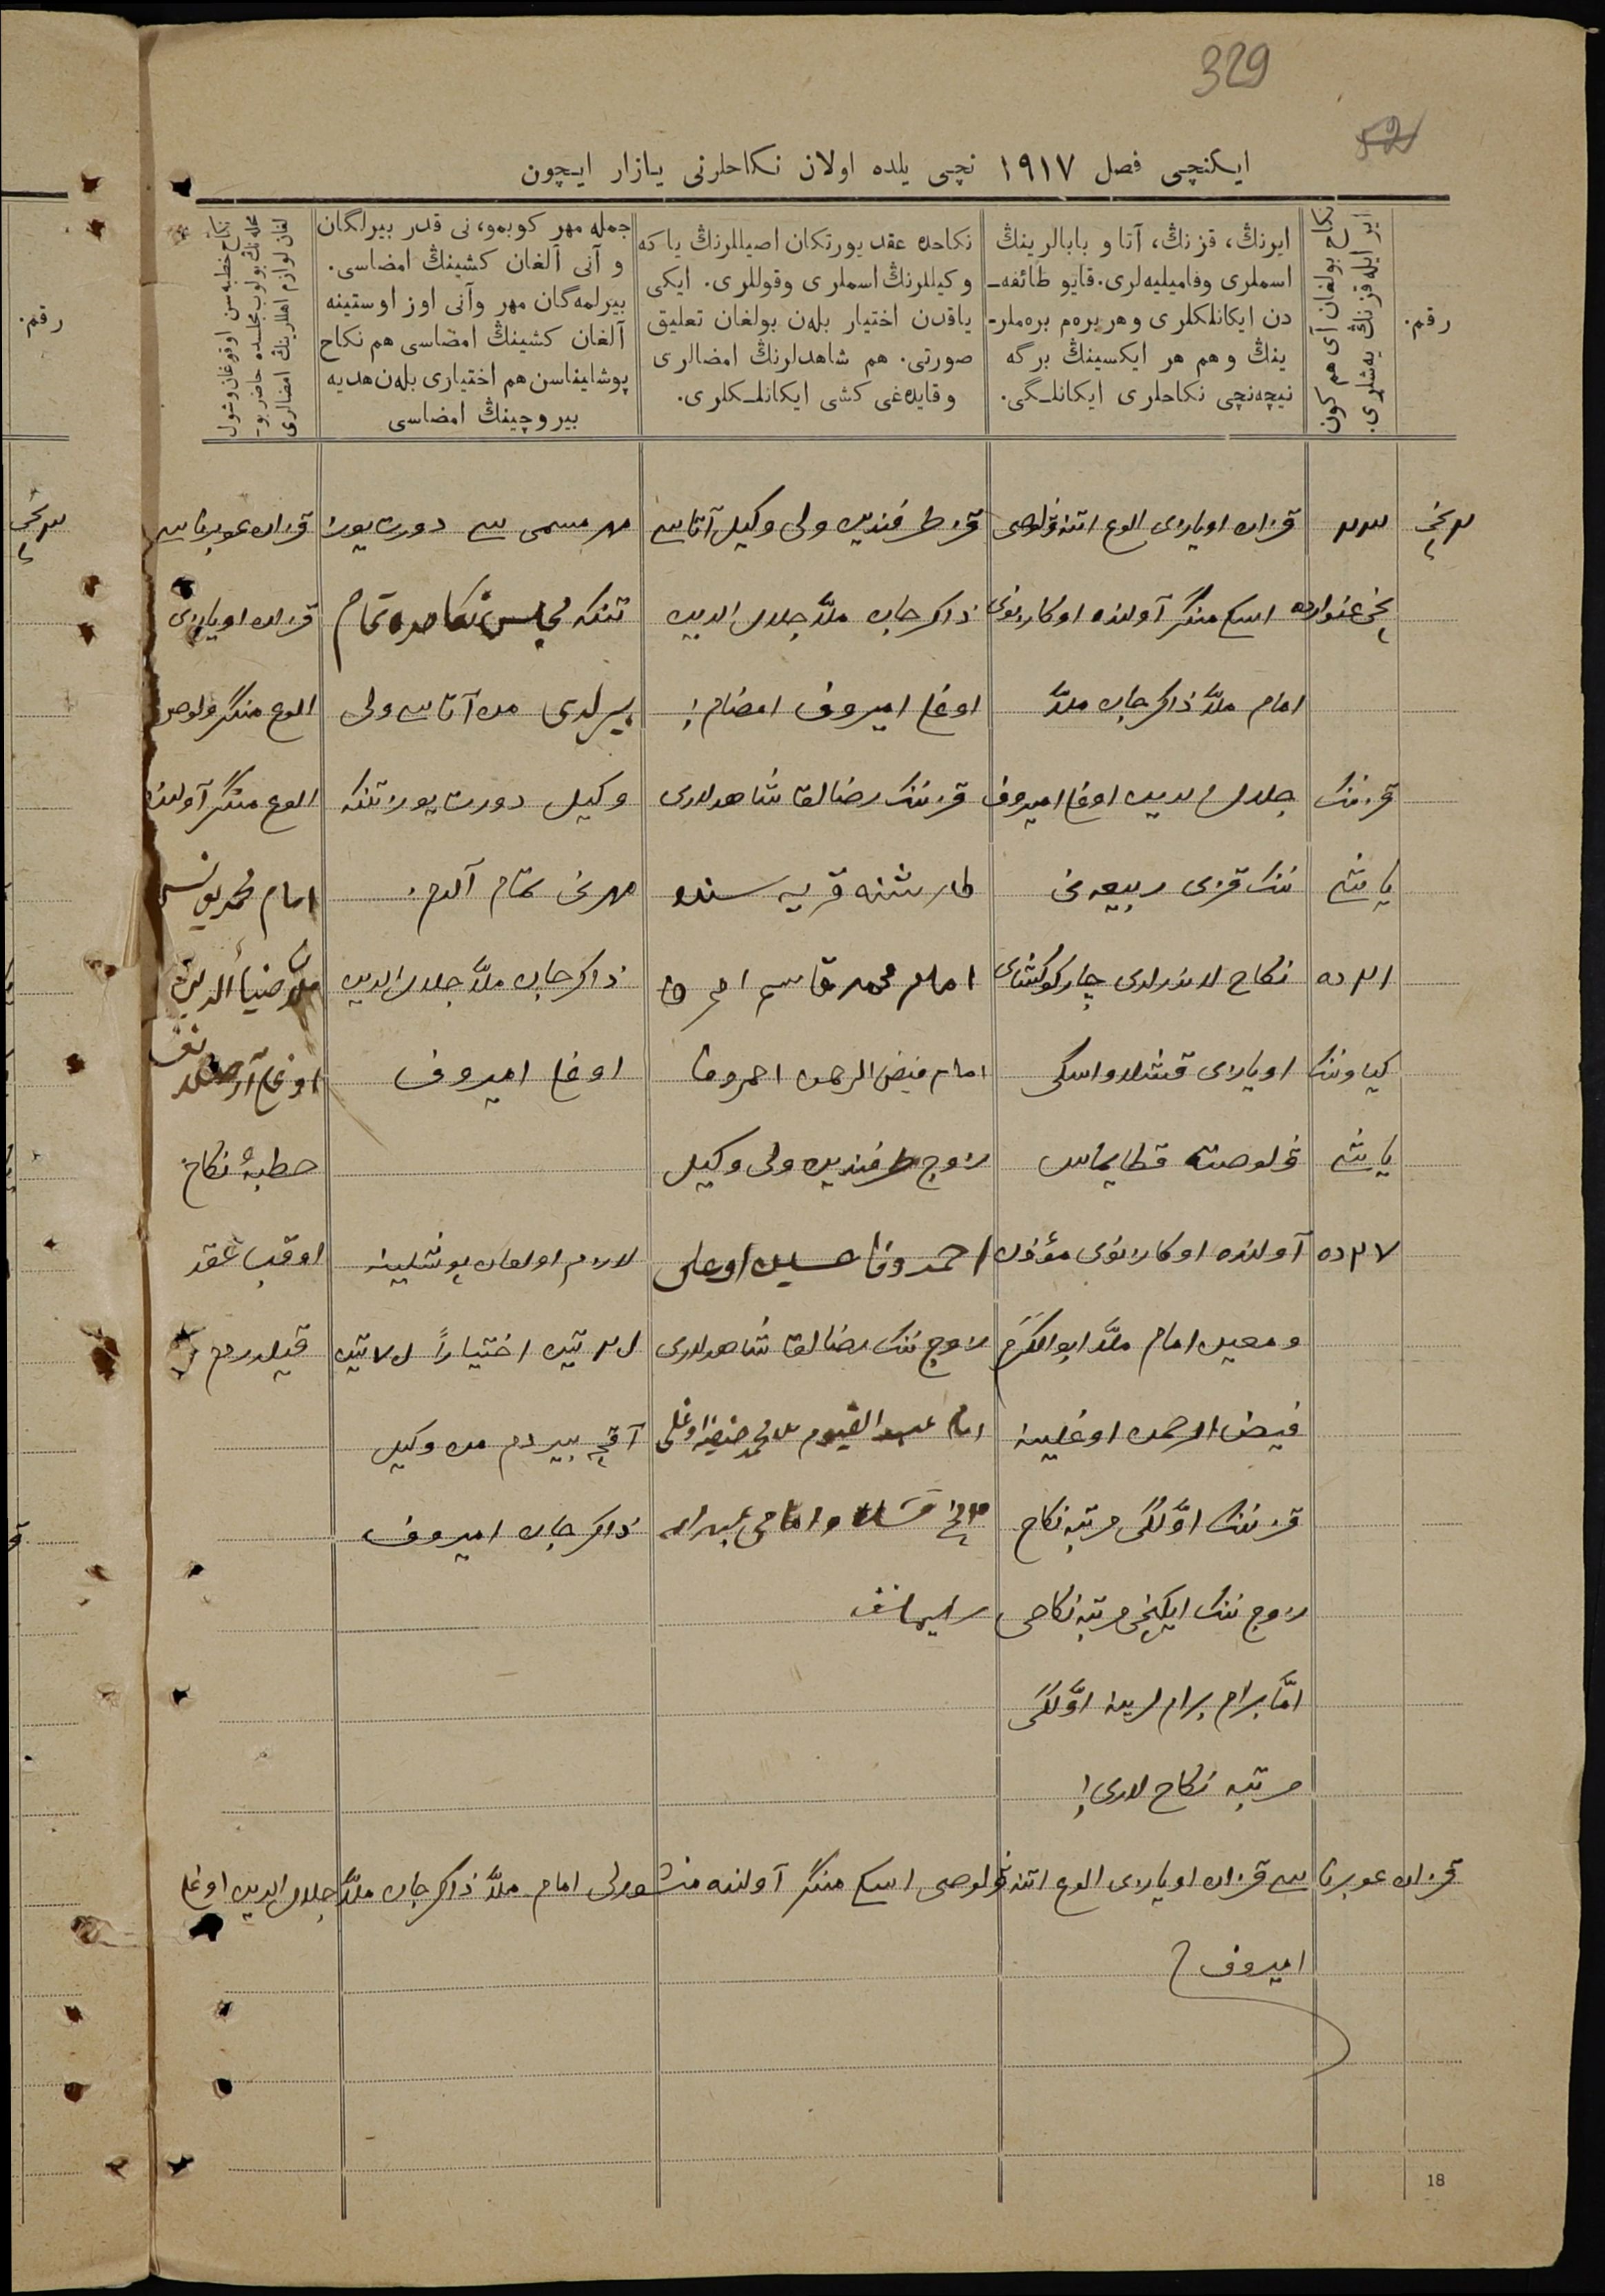 329
52
ایکنچی فصل ١٩١٧ نچی یلده اولان نکاحلرنی یازار ایچون
رقم.
نکاح بولغان آی هم کون
ایر ایله قزنڭ یه‌شلری.
ایرنڭ، قزنڭ، آتا و بابالرینڭ
اسملری وفامیلیه‌لری. قایو طائفه‌ـ
دن ایکانلکلری و هر بره‌م بره‌ملرـ
ینڭ و هم هر ایکسینڭ برگه
نیچه‌نچی نکاحلری ایکانلـگی.
نکاحده عقد یورتکان اصیللرنڭ یا که
وکیللرنڭ اسملری وقوللری. ایکی
یاقدن اختیار بله‌ن بولغان تعلیق
صورتی. هم شاهدلرنڭ امضالری
و قایده‌غی کشی ایکانلـکلری.
جمله مهر کوبمو، نی قدر بیرلگان
و آنی آلغان کشینڭ امضاسی.
بیرلمه‌گان مهر وآنی اوز اوستینه
آلغان کشینڭ امضاسی هم نکاح
پوشلیناسن هم اختیاری بله‌ن هدیه
بیروچینڭ امضاسی
نکاح خطبه‌سن اوقوغان وشول
محله‌نڭ بولوب مجلسده حاضر بوـ
لغان لوازم اهللارینڭ امضالری
رقم.
٣ نچی
قزان اویازی الوغ اتنه ولوصی
اسکی منگر آولنده اوکازنوی
امام ملّا ذاکرجان ملّا
جلال الدین اوغلی امیروف
ننک قزی ربیعه نی
نکاح لاندرلدی چارکوکشای
اویازی قشلاو اسکی
ولوصنه قطایماس
آولنده اوکازنوی مؤذن
و معین امام ملّا ابوالکرم
فیض الرحمن اوغلینه
قزننک اوّلگی مرتبه نکاح
زوج ننک ایکنچی مرتبه نکاحی
امّا برام برام لرینه اوّلگی
مرتبه نکاح لاری!
یغنوارده
قزننک
یاشی
٢١ ده
کیاوننک
یاشی
٢٧ ده
قز طرفندین ولی وکیل آتاسی
ذاکرجان ملّا جلال الدین
اوغلی امیروف امضام!
قزننک رضالقا شاهدلاری
قریه سنده
امام محمد قاسم
امام فیض الرحمن احمروف
زوج طرفندین ولی وکیل
احمدوفا حسین اوغلی
زوج ننک رضالقا شاهدلاری
امام عبدالقیوم ملا محمد حنیفه اوغلی
سلیمانف
مهر مسمی سی دورت یوز
تنکه مجلس نکاحده تمام
بیرلدی من آتاسی ولی
وکیل دورت یوز تنکه
مهرنی تمام آلدم.
ذاکرجان ملّا جلال الدین
اوغلی امیروف
لازم اولغان پوشلینه
٢٥ تین اختیاراً ٧٥ تین
آقچه بیردم من وکیل
ذاکرجان امیروف
قزان غوبرناسی
قزان اویازی
الوغ منگر ولوصی
الوغ منگر آولنده
امام محمد یونس
ملّا ضیاءالدین
خطبهٔ نکاح
اوقب عقد
قیلدردم
قزان غوبرناسی قزان اویازی الوغ اتنه ولوصی اسکی منگر آولنده منشورلی امام ملّا ذاکرجان ملّا جلال الدین اوغلی
امیروف
18